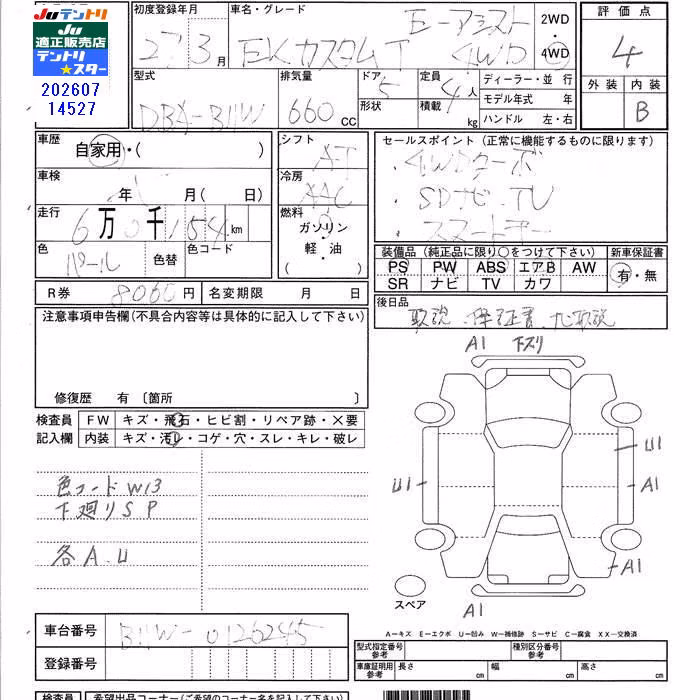 Juテントリ
Ju
適正販売店
テントリ
★スター
202607
14527
初度登録年月
27 3月
車名・グレード
E-アシスト
EKカスタムT 4WD
2WD
4WD
評価点
4
外装 内装
B
型式
DBA-B11W
排気量
660cc
ドア
5
形状
定員
4人
積載
kg
ディーラー・並行
モデル年式 年
ハンドル 左・右
車歴
自家用・( )
シフト
AT
車検
年 月( 日)
冷房
AAC
走行
6万0千154km
燃料
ガソリン
軽・油
( )
色
パール
色替
色コード
セールスポイント (正常に機能するものに限ります)
・4WDターボ
・SDナビ・TV
・スマートキー
装備品 (純正品に限り○をつけて下さい)
新車保証書
PS PW ABS エアB AW
SR ナビ TV カワ
有・無
R券 8060円
名変期限 月 日
後日品
取説・保証書・ナビ取説
注意事項申告欄(不具合内容等は具体的に記入して下さい)
修復歴 有 〔箇所 〕
検査員
記入欄
FW キズ・飛石・ヒビ割・リペア跡・×要
内装 キズ・汚レ・コゲ・穴・スレ・キレ・破レ
色コード W13
下廻りSP
各A.U
A1 下ズリ
U1
U1
A1
A1
A1
スペア
車台番号
B11W-0126245
登録番号
A－キズ E－エクボ U－凹み W－補修跡 S－サビ C－腐食 XX－交換済
型式指定番号
参考
種別区分番号
参考
車庫証明用
参考
長さ cm 幅 cm 高さ cm
検査員
希望出品コーナー(ご希望のコーナー名を記入して下さい)